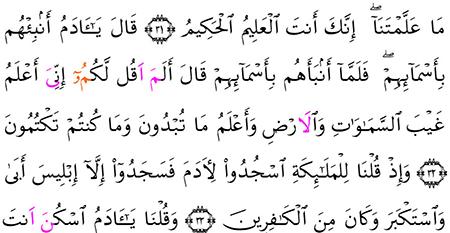 مَا عَلَّمْتَنَآۖ إِنَّكَ أَنتَ ٱلْعَلِيمُ ٱلْحَكِيمُ ﴿٣١﴾ قَالَ يَـٰٓـَٔادَمُ أَنۢبِئْهُم
بِأَسْمَآئِهِمْۖ فَلَمَّآ أَنۢبَأَهُم بِأَسْمَآئِهِمْ قَالَ أَلَمَ اَقُل لَّكُمُۥٓ إِنِّيَ أَعْلَمُ
غَيْبَ ٱلسَّمَـٰوَٰتِ وَٱلَارْضِ وَأَعْلَمُ مَا تُبْدُونَ وَمَا كُنتُمْ تَكْتُمُونَ
﴿٣٢﴾ وَإِذْ قُلْنَا لِلْمَلَـٰٓئِكَةِ ٱسْجُدُوا۟ لِـَٔادَمَ فَسَجَدُوٓا۟ إِلَّآ إِبْلِيسَ أَبَىٰ
وَٱسْتَكْبَرَ وَكَانَ مِنَ ٱلْكَـٰفِرِينَ ﴿٣٣﴾ وَقُلْنَا يَـٰٓـَٔادَمُ ٱسْكُنَ اَنتَ